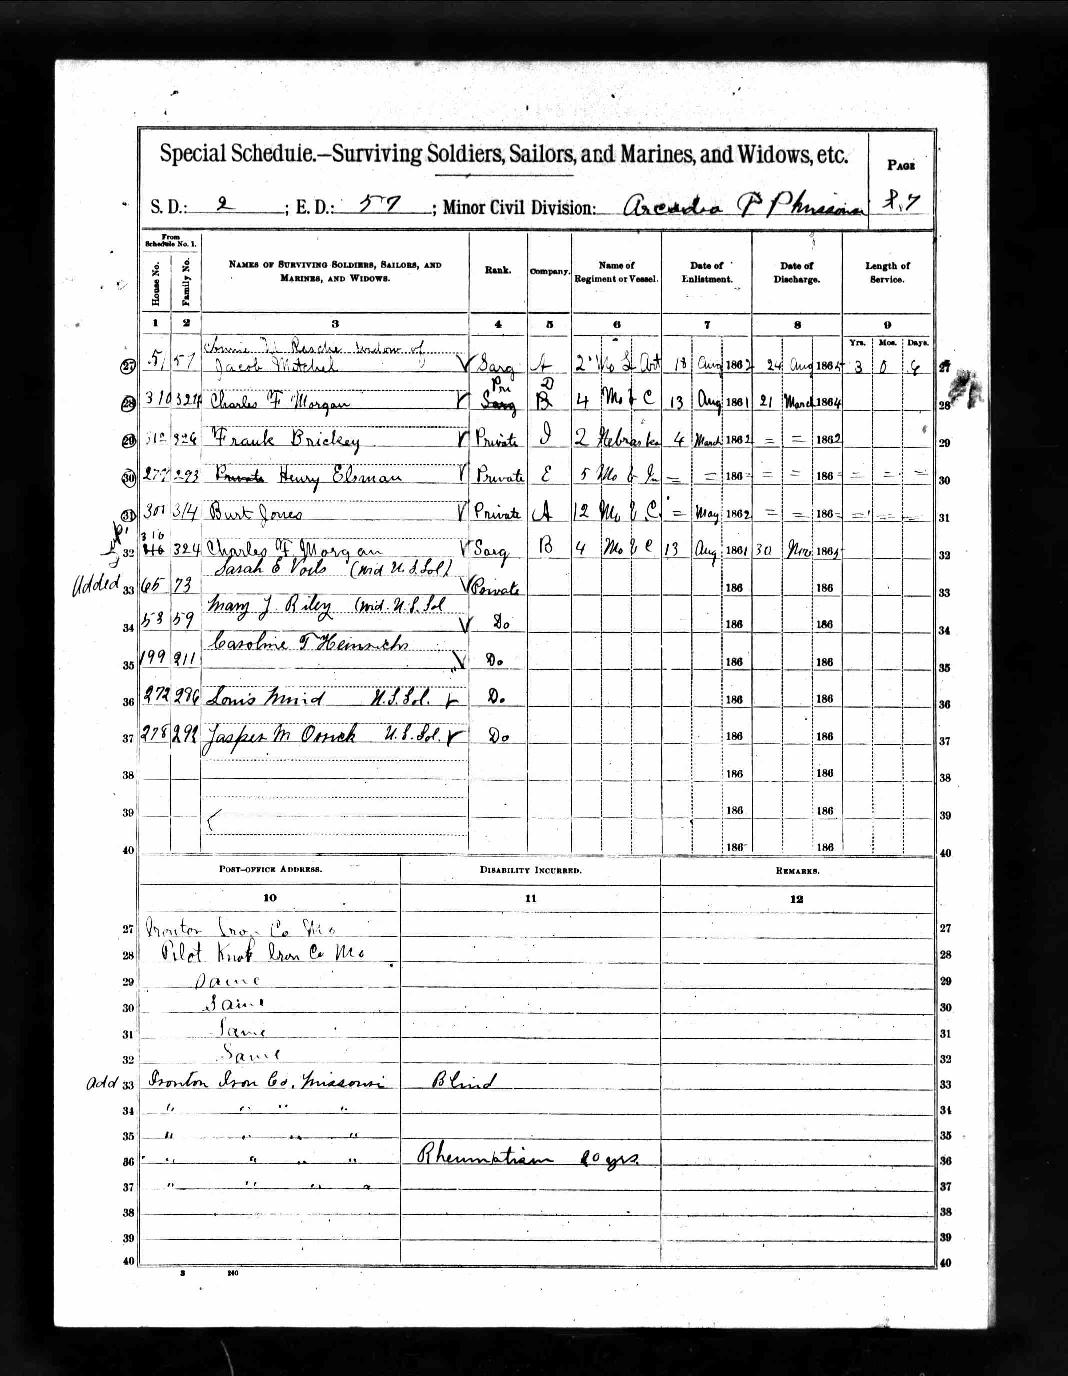 Special Schedule.—Surviving Soldiers, Sailors, and Marines, and Widows, etc.
PAGE
S. D.: 2 ; E. D.: 57 ; Minor Civil Division: Arcadia
From Schedule No. 1.
House No. Family No. NAMES OF SURVIVING SOLDIERS, SAILORS, AND MARINES, AND WIDOWS. Rank. Company. Name of Regiment or Vessel. Date of Enlistment. Date of Discharge. Length of Service.
1 2 3 4 5 6 7 8 9
Yrs. Mos. Days.
widow of
27 51 57 Jacob Mitchel Sarg A 2 Mo L Art 18 Aug 1862 24 Aug 1865 3 0 6 27
Pri D
28 310 324 Charles F Morgan Sarg B 4 Mo C 13 Aug 1861 21 March 1864 28
29 312 326 Frank Brickey Private I 2 Nebraska 4 March 1862 = = 1862 29
30 277 293 Private Henry Elsman Private E 5 Mo = = 186 = = 186 = = = 30
31 301 314 Burt Jones Private A 12 Mo C = May 1862 = = 186 = = = 31
310
32 324 Charles F Morgan Sarg B 4 Mo C 13 Aug 1861 30 Nov 186 32
Sarah E Voils (wid U.S. Sol)
Added 33 65 73 Private 186 186 33
Mary J. Riley (wid. U.S. Sol
34 53 59 Do 186 186 34
Caroline T Heinrichs
35 199 211 Do 186 186 35
36 272 286 Louis U.S. Sol. Do 186 186 36
37 278 292 Jasper M U.S. Sol. Do 186 186 37
38 186 186 38
39 186 186 39
40 186 186 40
POST-OFFICE ADDRESS. DISABILITY INCURRED. REMARKS.
10 11 12
27 Ironton Iron Co Mo 27
28 Pilot Knob Iron Co Mo 28
29 Same 29
30 Same 30
31 Same 31
32 Same 32
Add 33 Ironton Iron Co. Missouri Blind 33
34 " " " " 34
35 " " " " 35
36 " " " " Rheumatism 20 yrs. 36
37 " " " " 37
38 38
39 39
40 40